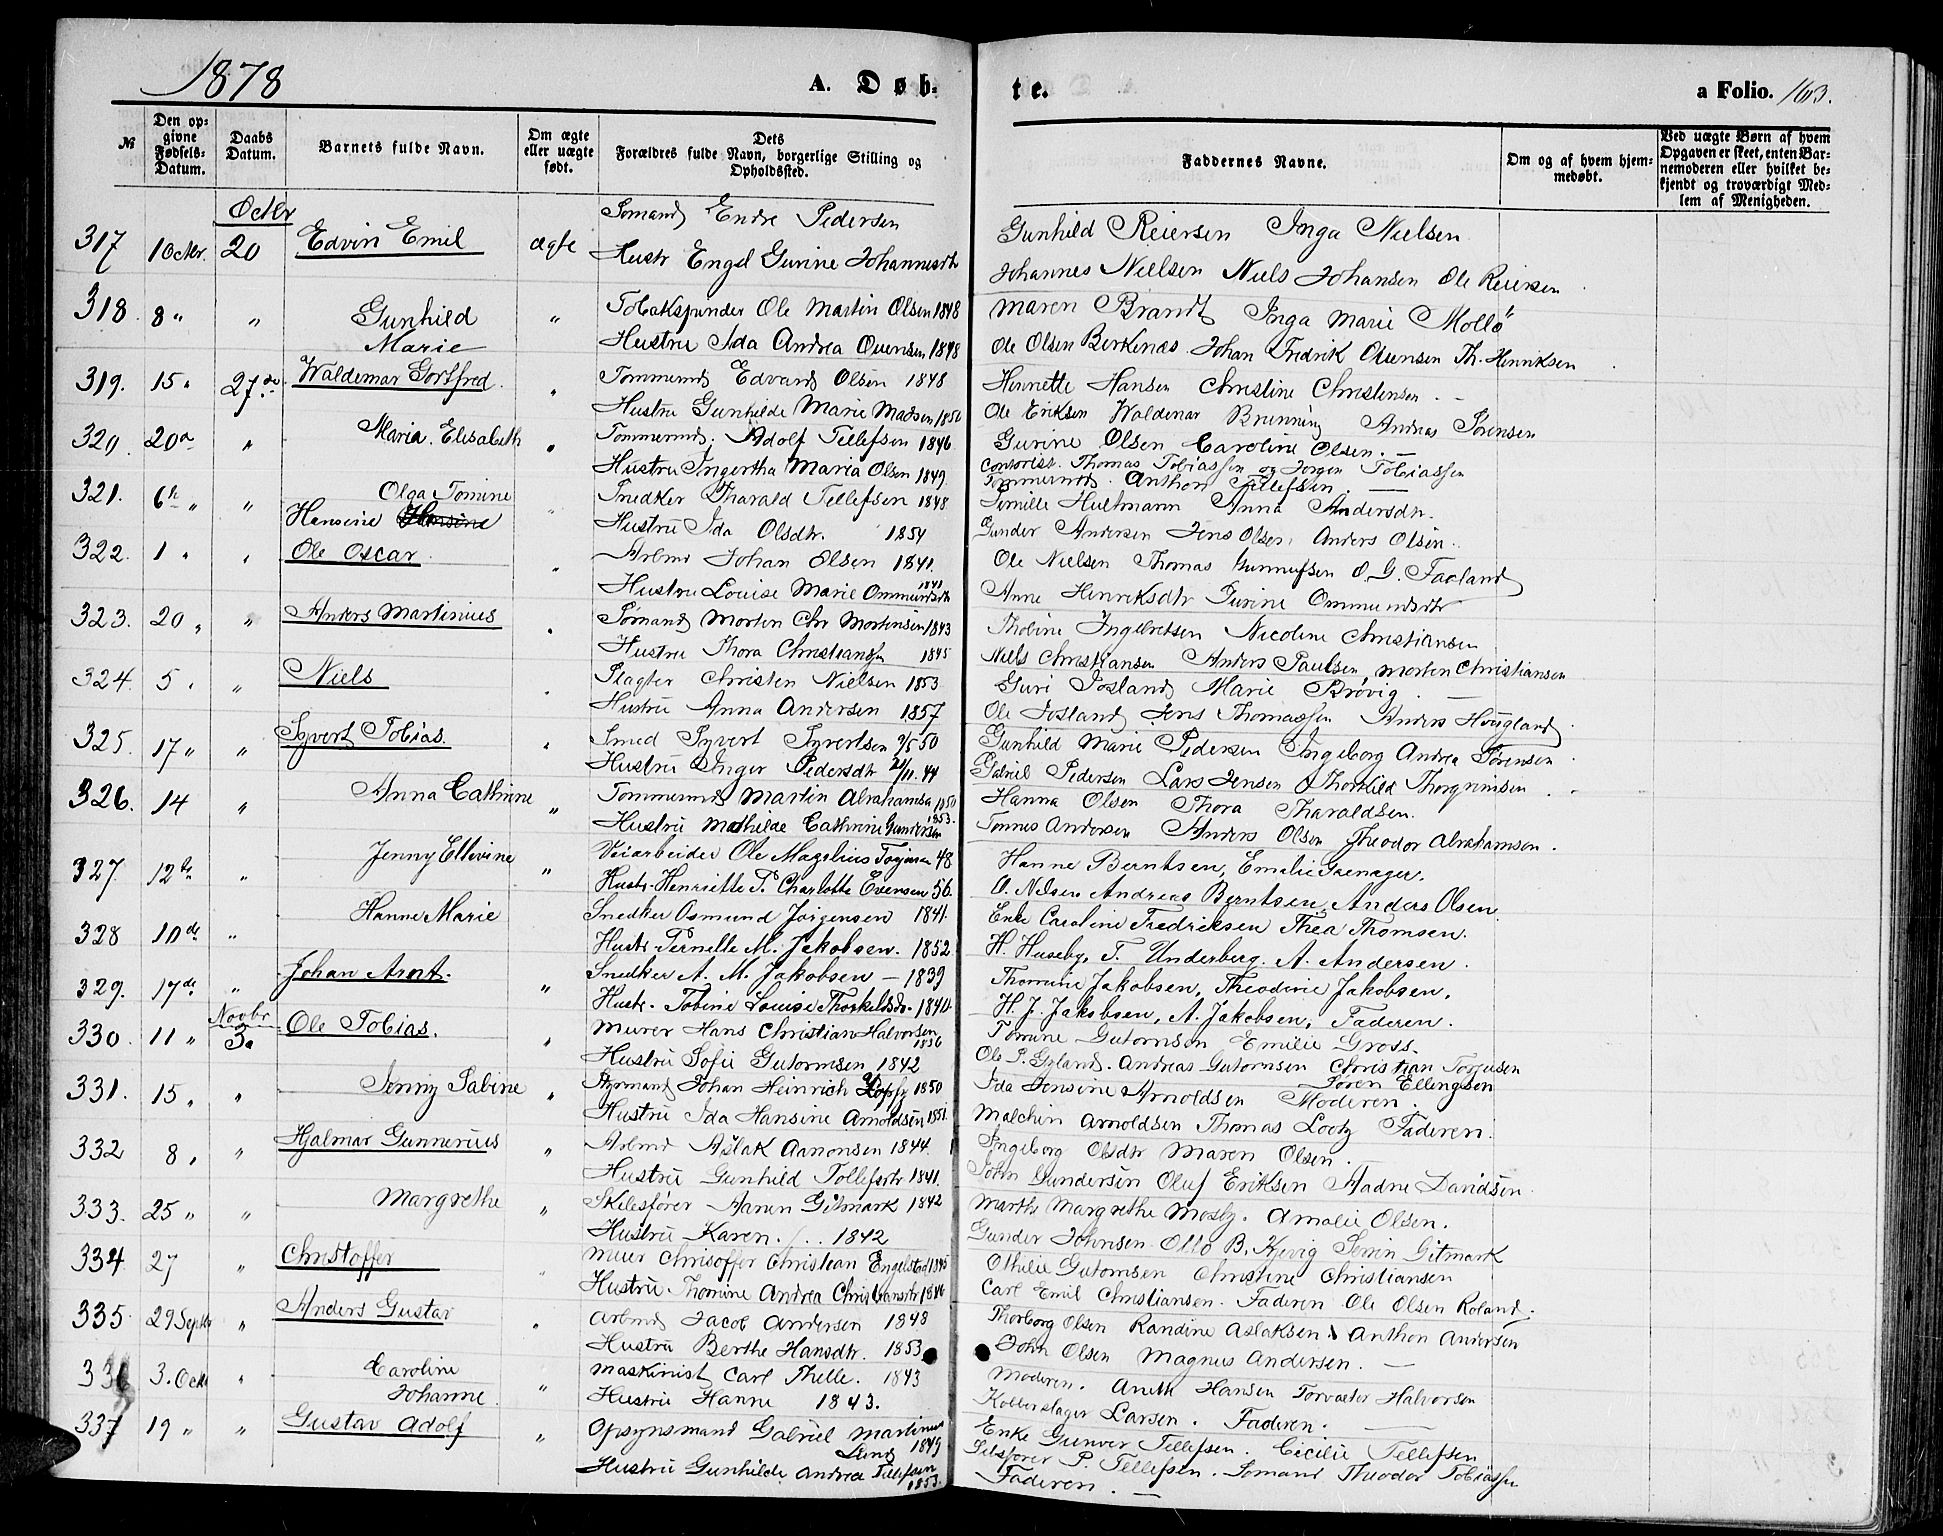 1878
A. Døb-
te.
a Folio. 163.
№
Den opgivne Fødsels-Datum.
Daabs Datum.
Barnets fulde Navn.
Om ægte eller uægte født.
Dets Forældres fulde Navn, borgerlige Stilling og Opholdssted.
Faddernes Navne.
Om og af hvem hjemmedøbt.
Ved uægte Børn af hvem Opgaven er skeet, enten Barnemoderen eller hvilket bekjendt og troværdigt Medlem af Menigheden.
Octbr
317 1 Octbr. 20 Edvin Emil ægte Sømand Endre Pedersen
Hustr Engel Gurine Johannesdtr
Gunhild Reiersen Inga Nielsen
Johannes Nielsen Niels Johansen Ole Reiersen
318. 8 " " Gunhild Marie " Tobakspinder Ole Martin Olsen 1848
Hustru Ida Andrea Evensen 1848
Maren Brandt Inga Marie Mollö
Ole Olsen Berkenes Johan Fredrik Th. Henriksen
319. 15 " 27de Waldemar Gortfred " Tømmermd Edvard Olsen 1848
Hustru Gunhilde Marie Madsen 1850
Henriette Hansen Christine Christensen
Ole Eriksen Waldemar Brunning Andreas Sørensen
320. 20de " Maria Elisabeth " Tømmermd. Adolf Tellefsen 1846
Hustru Ingertha Maria Olsen 1849
Gurine Olsen Caroline Olsen
Contorist. Thomas Tobiassen og Jørgen Tobiassen
Tømmermd. Anthon Tellefsen
321. 6te " " Olga Tomine Hansine " Snedker Tharald Tellefsen 1848
Hustru Ida Olsdtr. 1854
Pernille Hultmann Anna Andersdtr.
Gunder Andersen Jens Olsen Anders Olsen
322. 1 " " Ole Oscar " Arbmd Johan Olsen 1841.
Hustru Louise Marie Ommundsdtr 1841
Ole Nielsen Thomas Gunnufsen O. G. Faoland
Anne Henriksdtr Gurine Ommundsdtr
323. 20 " " Anders Martinius " Sømand Morten Chr Mortensen 1843
Hustru Thora Christiansen 1845
Tholine Ingebretsen Nicoline Christiansen
Niels Christiansen Anders Paulsen Morten Christiansen
324. 5 " " Niels " Slagter Christen Nielsen 1853
Hustru Anna Andersen 1857
Guri Josland Marie Brøvig
Ole Josland Jens Thomassen Anders Høygland
325. 17 " " Syvert Tobias. " Smed Syvert Syvertsen 2/5 50
Hustru Inger Pedersdtr 21/11. 44
Gunhild Marie Pedersen Ingeborg Andrea Sørensen
Gabriel Pedersen Lars Jensen Thorkild Thorgrimsen
326. 14 " Anna Cathrine " Tømmermd Martin Abrahamsen 1850
Hustru Mathilde Cathrine Gundersen 1853.
Hanna Olsen Thora Tharaldsen.
Tønnes Andersen Anders Olsen Theodor Abrahamsen.
327. 12te " Jenny Ellevine " Veiarbeider Ole Magelius Torjusen 48
Hustr. Henriette T. Charlotte Evensen 56.
Hanne Berntsen, Emelie Grenager.
O. Nilsen Andreas Berntsen Anders Olsen.
328 10de " Hanne Marie Snedker Osmund Jørgensen 1841.
Hustr. Pernelle M. Jakobsen. 1852
Enke Caroline Fredriksen Thea Thomsen.
H. Huseby, T. Underberg. A. Andersen.
329. 17de " Johan Arnt. " Snedker A. M. Jakobsen – 1839
Hustr. Tobine Louise Thorkelsd. 1840
Thomine Jakobsen, Theodine Jakobsen.
H. J. Jakobsen, A. Jakobsen, Faderen.
Novbr
330. 11 " 3 Ole Tobias. " Murer Hans Christian Halvorsen 1836
Hustru Sofie Gutormsen 1842
Tomine Gutormsen Emilie Gross.
Ole P. Gyland. Andreas Gutormsen Christian Torjusen
Søren Ellingsen
331. 15 " " Jenny Sabine " Styrmand Johan Heinrich 1850
Hustru Ida Hansine Arnoldsen 1851.
Ida Jensine Arnoldsen Moderen.
Malchin Arnoldsen Thomas Lootz Faderen.
332 8 " " Hjalmar Gunnerius " Arbmd Aslak Aanonsen 1844.
Hustru Gunhild Tollefsdtr 1841.
Ingeborg Olsdtr Maren Olsen.
John Gundersen Oluf Eriksen Aadne Davidsen
333. 25 " " Margrethe " Skibsfører Aanen Gitmark 1842
Hustru Karen. 1842
Marthe Margrethe Mosby. Amalie Olsen.
Gunder Johnsen Otto B. Kjevig Sevrin Gitmark
334 27 " Christoffer " Murer Chrisoffer Christian Engelstad 1845
Hustru Thomine Andrea Christiansdtr 1846
Othilie Gutomsen Christine Christiansen
Carl Emil Christiansen. Faderen Ole Olsen Roland.
335. 29 Septbr " Anders Gustav " Arbmd Jacob Andersen 1848
Hustru Berthe Hansdtr. 1853
Thorborg Olsen Randine Aslaksen Anthon Andersen
John Olsen Magnus Andersen.
336 3. Octb " Caroline Johanne " Maskinist Carl Thelle. 1843
Hustru Hanne 1843.
Moderen. Aneth Hansen Torvæter Halvorsen
Kobberslager Larsen. Faderen.
337 19 " " Gustav Adolf " Opsynsmand Gabriel Martinus Lund 1849
Hustru Gunhilde Andrea Tellefsen 1853.
Enke Gunvor Tellefsen. Cicilie Tellefsen
P. Tellefsen. Sømand Theodor Tobiassen
Faderen.